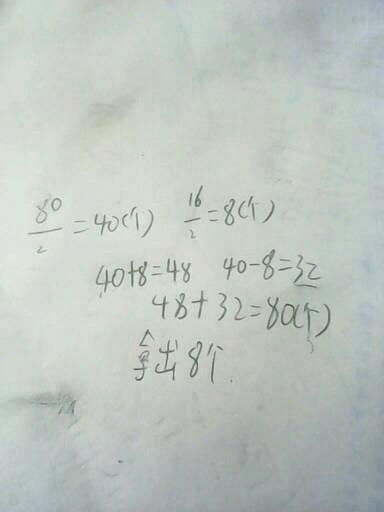 80/2=40(个) 16/2=8(个)
40+8=48 40-8=32
48+32=80(个)
拿出8个.